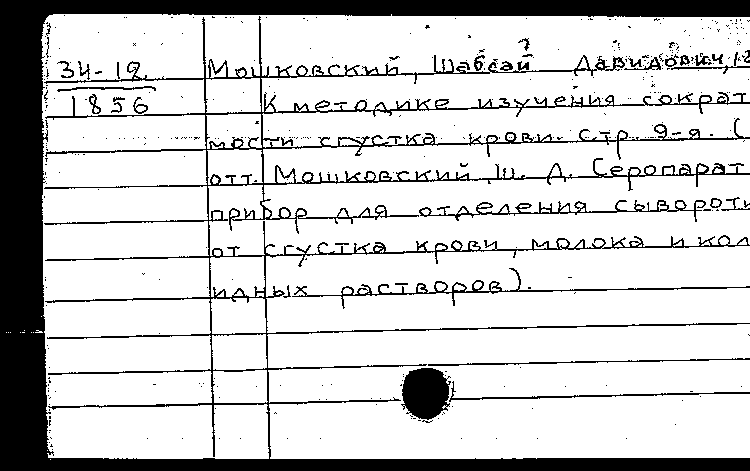 34-12. Мошковский, Шабсай Давидович, 18
1856 К методике изучения сократ
мости сгустка крови. стр. 9-я. (
отт. Мошковский, Ш. Д. Серопарат
прибор для отделения сыворотк
от сгустка крови, молока и кол
идных растворов).